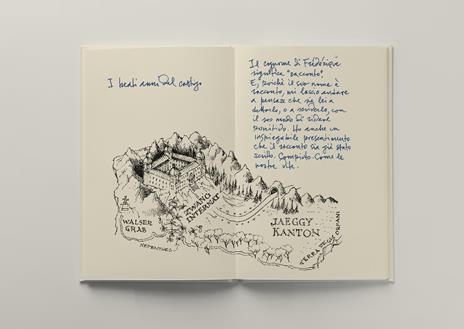 I beati anni del castigo
Il cognome di Frédérique
significa "racconto".
E, poiché il suo nome è
racconto, mi lascio andare
a pensare che sia lei a
dettarlo, o a scriverlo, con
il suo modo di ridere
punitivo. Ho anche un
inspiegabile presentimento
che il racconto sia già stato
scritto. Compiuto. Come le
nostre vite.
WALSER
GRAB
NEPENTHES
ROMANO
INTERNAT
JAEGGY
KANTON
TERRA DEGLI ORFANI